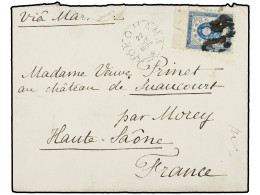 Via Mar
Madame Veuve Prinet
au château de Suaucourt
par Morey
Haute-Saône
France